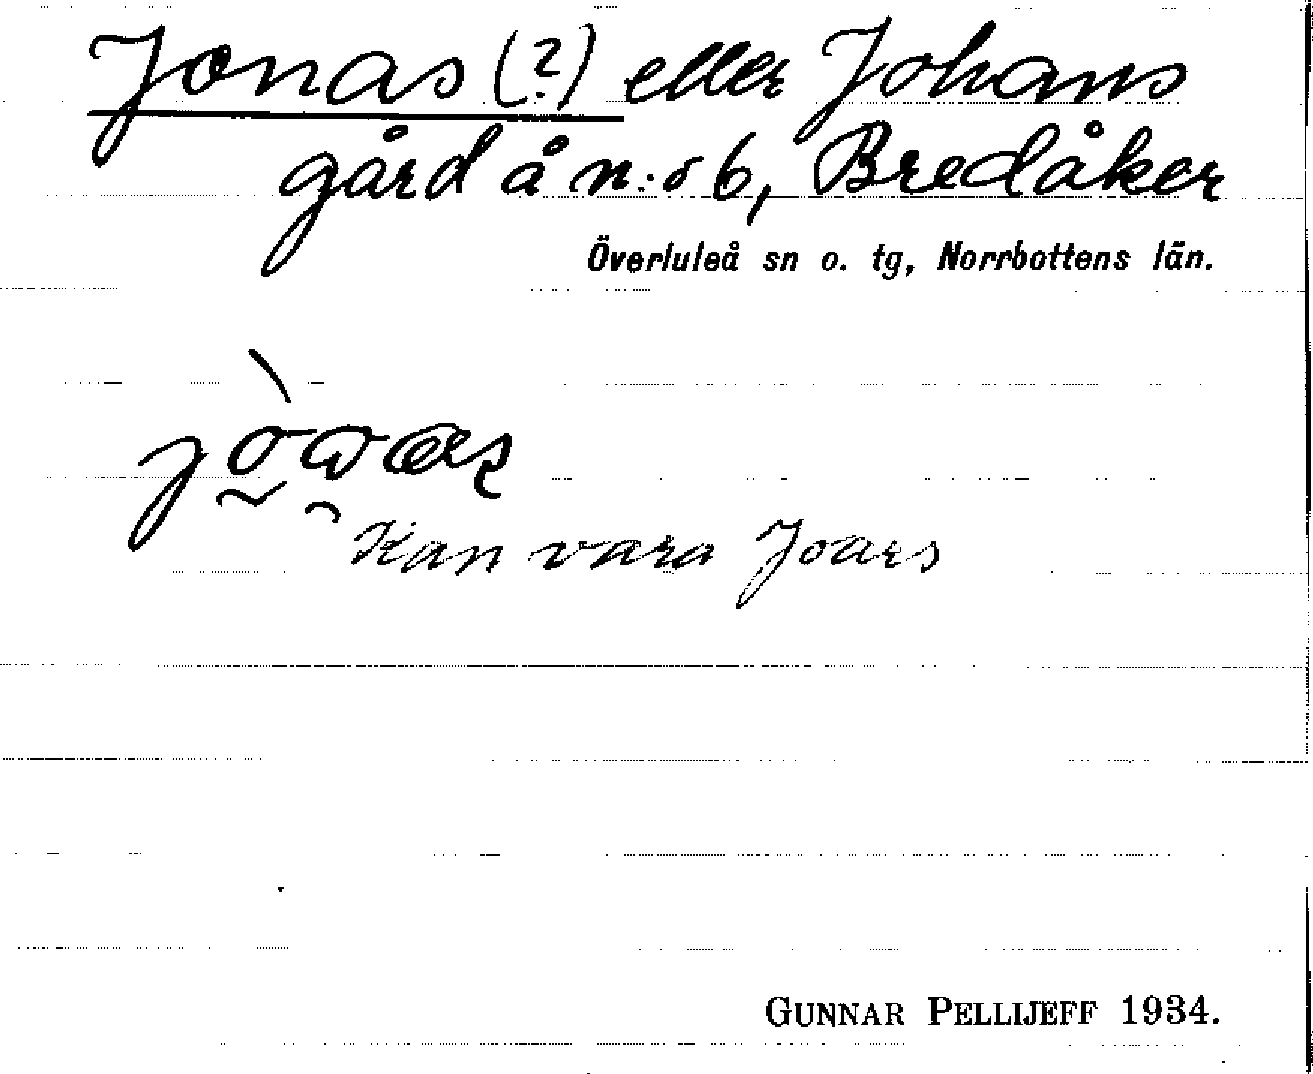 Jonas (?) eller Johans
gård å n:o 6, Bredåker
Överluleå sn o. tg, Norrbottens län.
Kan vara Joars
GUNNAR PELLIJEFF 1934.